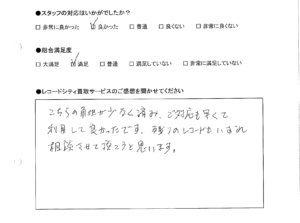 ●スタッフの対応はいかがでしたか？
□ 非常に良かった ☑ 良かった □ 普通 □ 良くない □ 非常に良くない
●総合満足度
□ 大満足 ☑ 満足 □ 普通 □ 満足していない □ 非常に満足していない
●レコードシティ買取サービスのご感想を聞かせてください
こちらの負担が少なく済み、ご対応も早くて
利用して良かったです。残りのレコードもいずれ
相談させて頂こうと思います。